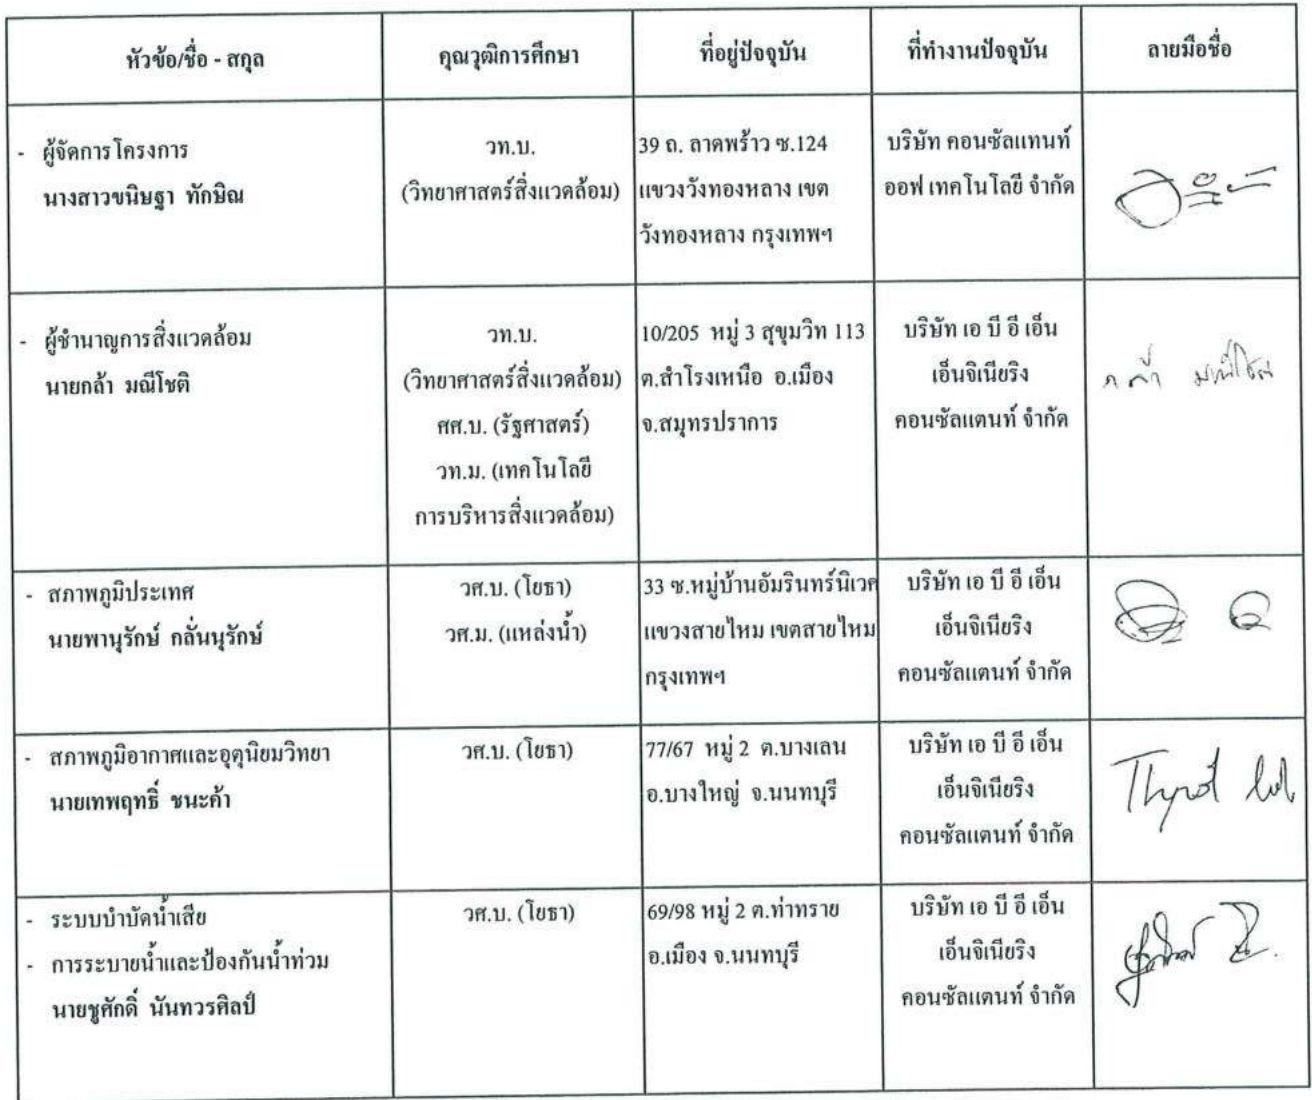 หัวข้อ/ชื่อ - สกุล
คุณวุฒิการศึกษา
ที่อยู่ปัจจุบัน
ที่ทำงานปัจจุบัน
ลายมือชื่อ
- ผู้จัดการโครงการ
นางสาวขนิษฐา ทักษิณ
วท.บ.
(วิทยาศาสตร์สิ่งแวดล้อม)
39 ถ. ลาดพร้าว ซ.124
แขวงวังทองหลาง เขต
วังทองหลาง กรุงเทพฯ
บริษัท คอนซัลแทนท์
ออฟ เทคโนโลยี จำกัด
- ผู้ชำนาญการสิ่งแวดล้อม
นายกล้า มณีโชติ
วท.บ.
(วิทยาศาสตร์สิ่งแวดล้อม)
ศศ.บ. (รัฐศาสตร์)
วท.ม. (เทคโนโลยี
การบริหารสิ่งแวดล้อม)
10/205 หมู่ 3 สุขุมวิท 113
ต.สำโรงเหนือ อ.เมือง
จ.สมุทรปราการ
บริษัท เอ บี อี เอ็น
เอ็นจิเนียริง
คอนซัลแตนท์ จำกัด
กล้า มณีโชติ
- สภาพภูมิประเทศ
นายพานุรักษ์ กลั่นนุรักษ์
วศ.บ. (โยธา)
วศ.ม. (แหล่งน้ำ)
33 ซ.หมู่บ้านอัมรินทร์นิเวศ
แขวงสายไหม เขตสายไหม
กรุงเทพฯ
บริษัท เอ บี อี เอ็น
เอ็นจิเนียริง
คอนซัลแตนท์ จำกัด
- สภาพภูมิอากาศและอุตุนิยมวิทยา
นายเทพฤทธิ์ ชนะค้า
วศ.บ. (โยธา)
77/67 หมู่ 2 ต.บางเลน
อ.บางใหญ่ จ.นนทบุรี
บริษัท เอ บี อี เอ็น
เอ็นจิเนียริง
คอนซัลแตนท์ จำกัด
- ระบบบำบัดน้ำเสีย
- การระบายน้ำและป้องกันน้ำท่วม
นายชูศักดิ์ นันทวรศิลป์
วศ.บ. (โยธา)
69/98 หมู่ 2 ต.ท่าทราย
อ.เมือง จ.นนทบุรี
บริษัท เอ บี อี เอ็น
เอ็นจิเนียริง
คอนซัลแตนท์ จำกัด